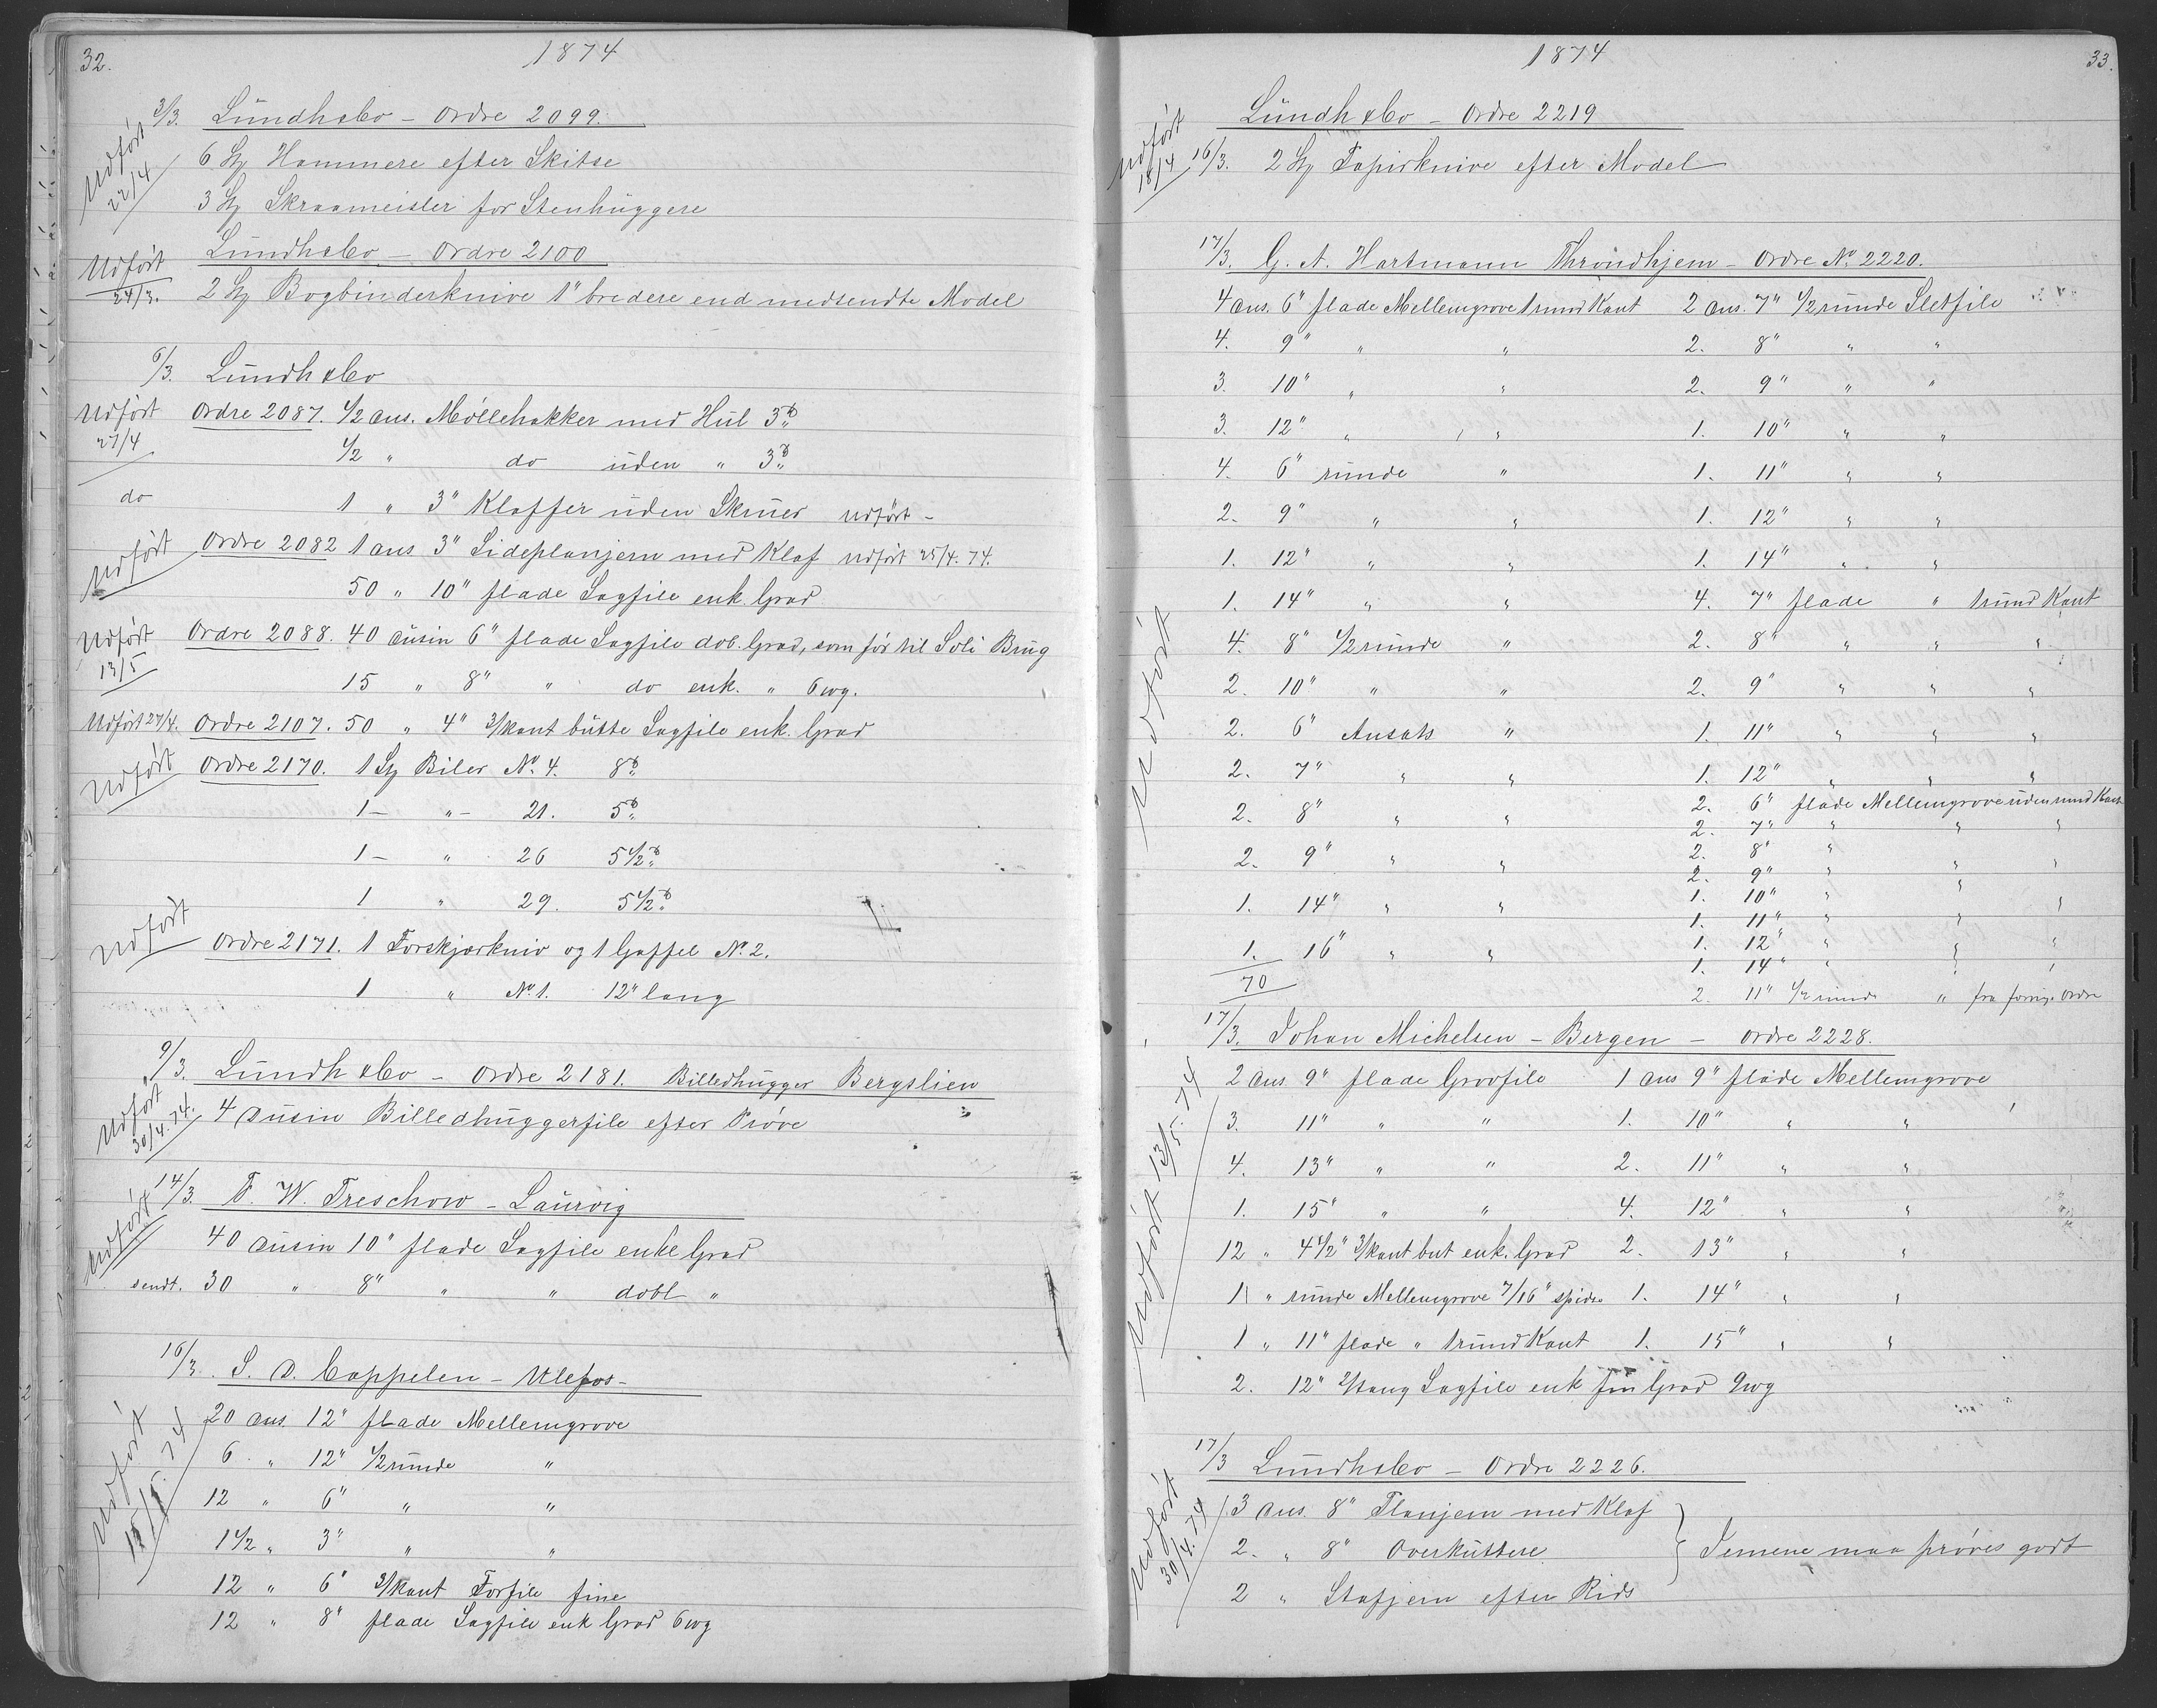 32.
1874
3/3. Lundh & Co – Ordre 2099.
Udført 22/4
6 St Hammere efter Skitse
3 St Skraameisler for Stenhuggere
Lundh & Co – Ordre 2100
Udført 24/3. 2 St Bogbinderknive 1" bredere end medsendte Model
6/3. Lundh & Co
Udført 27/4 Ordre 2087. 1/2 dus. Møllehakker med Hul 3 ℔
1/2 " do uden " 3 ℔
do 1 " 3" Kloffer uden Skruer Udført –
Udført Ordre 2082 1 dus 3" Sideplanjern med Klaf Udført 25/4. 74.
50 " 10" flade Sagfile enk. Grad
Udført 13/5 Ordre 2088. 40 dusin 6" flade Sagfile dob. Grad, som før til Soli Brug
15 " 8" " do enk. " 6wg.
Udført 27/4. Ordre 2107. 50 " 4" 3/kant butte Sagfile enk. Grad
Udført Ordre 2170. 1 St Biler No. 4. 8 ℔
1 – " – 21. 5 ℔
1 – " 26 5 1/2 ℔
1 " 29. 5 1/2 ℔
Udført Ordre 2171. 1 Forskjærkniv og 1 Gaffel No. 2.
1 " No. 1. 12" lang
9/3. Lundh & Co – Ordre 2181. Billedhugger Bergslien
Udført 30/4. 74. 4 dusin Billedhuggerfile efter Prøve
14/3. F. W. Treschow – Laurvig
Udført 40 dusin 10" flade Sagfile enkl Grad
sendt. 30 " 8" " " dobl "
16/3. S. D. Cappelen – Ulefos –
Udført 15/5. 74
20 dus. 12" flade Mellemgrove
6 " 12" 1/2runde "
12 " 6" " "
1 1/2 " 3" " "
12 " 6" 3/kant Forfile fine
12 " 8" flade Sagfile enk Grad 6wg
1874
33.
Lundh & Co – Ordre 2219
Udført 18/4 16/3. 2 St Papirknive efter Model
17/3. G. A. Hartmann Throndhjem – Ordre No. 2220.
Udført
4 dus. 6" flade Mellemgrove 1 rund Kant 2 dus. 7" 1/2runde Sletfile
4. 9" " " 2. 8" " "
3. 10" " " 2. 9" " "
3. 12" " " 1. 10" " "
4. 6" runde " 1. 11" " "
2. 9" " " 1. 12" " "
1. 12" " " 1. 14" " "
1. 14" " " 4. 7" flade " 1 rund Kant
4. 8" 1/2runde " 2. 8" " " "
2. 10" " " 2. 9" " " "
2. 6" Ansats " 1. 11" " " "
2. 7" " " 1. 12" " " "
2. 8" " " 2. 6" flade Mellemgrove uden rund Kant
2. 7" " " "
2. 9" " " 2. 8" "
2. 9" " " "
1. 14" " " 1. 10" " " "
1. 11" " "
1. 16" " " 1. 12" " " "
1. 14" " " "
70 2. 11" 1/2 runde " fra forrige Ordre
17/3. Johan Michelsen – Bergen – Ordre 2228.
Udført 13/5. 74
2 dus. 9" flade Grovfile 1 dus 9" flade Mellemgrove
3. 11" " " 1. 10" " "
4. 13" " " 2. 11" " "
1. 15" " " 4. 12" " "
12 " 4 1/2" 3/kant but enk. Grad 2. 13" " "
1 " runde Mellemgrove 7/16" spidse 1. 14" " "
1 " 11" flade " 1 rund Kant 1. 15" " "
2. 12" 2/tang Sagfile enk fin Grad 9wg
17/3 Lundh & Co – Ordre 2226.
Udført 30/4. 74
3 dus. 8" Planjern med Klaf
2. " 8" Overkuttere } Jernene maa prøves godt
2 " Stafjern efter Rids